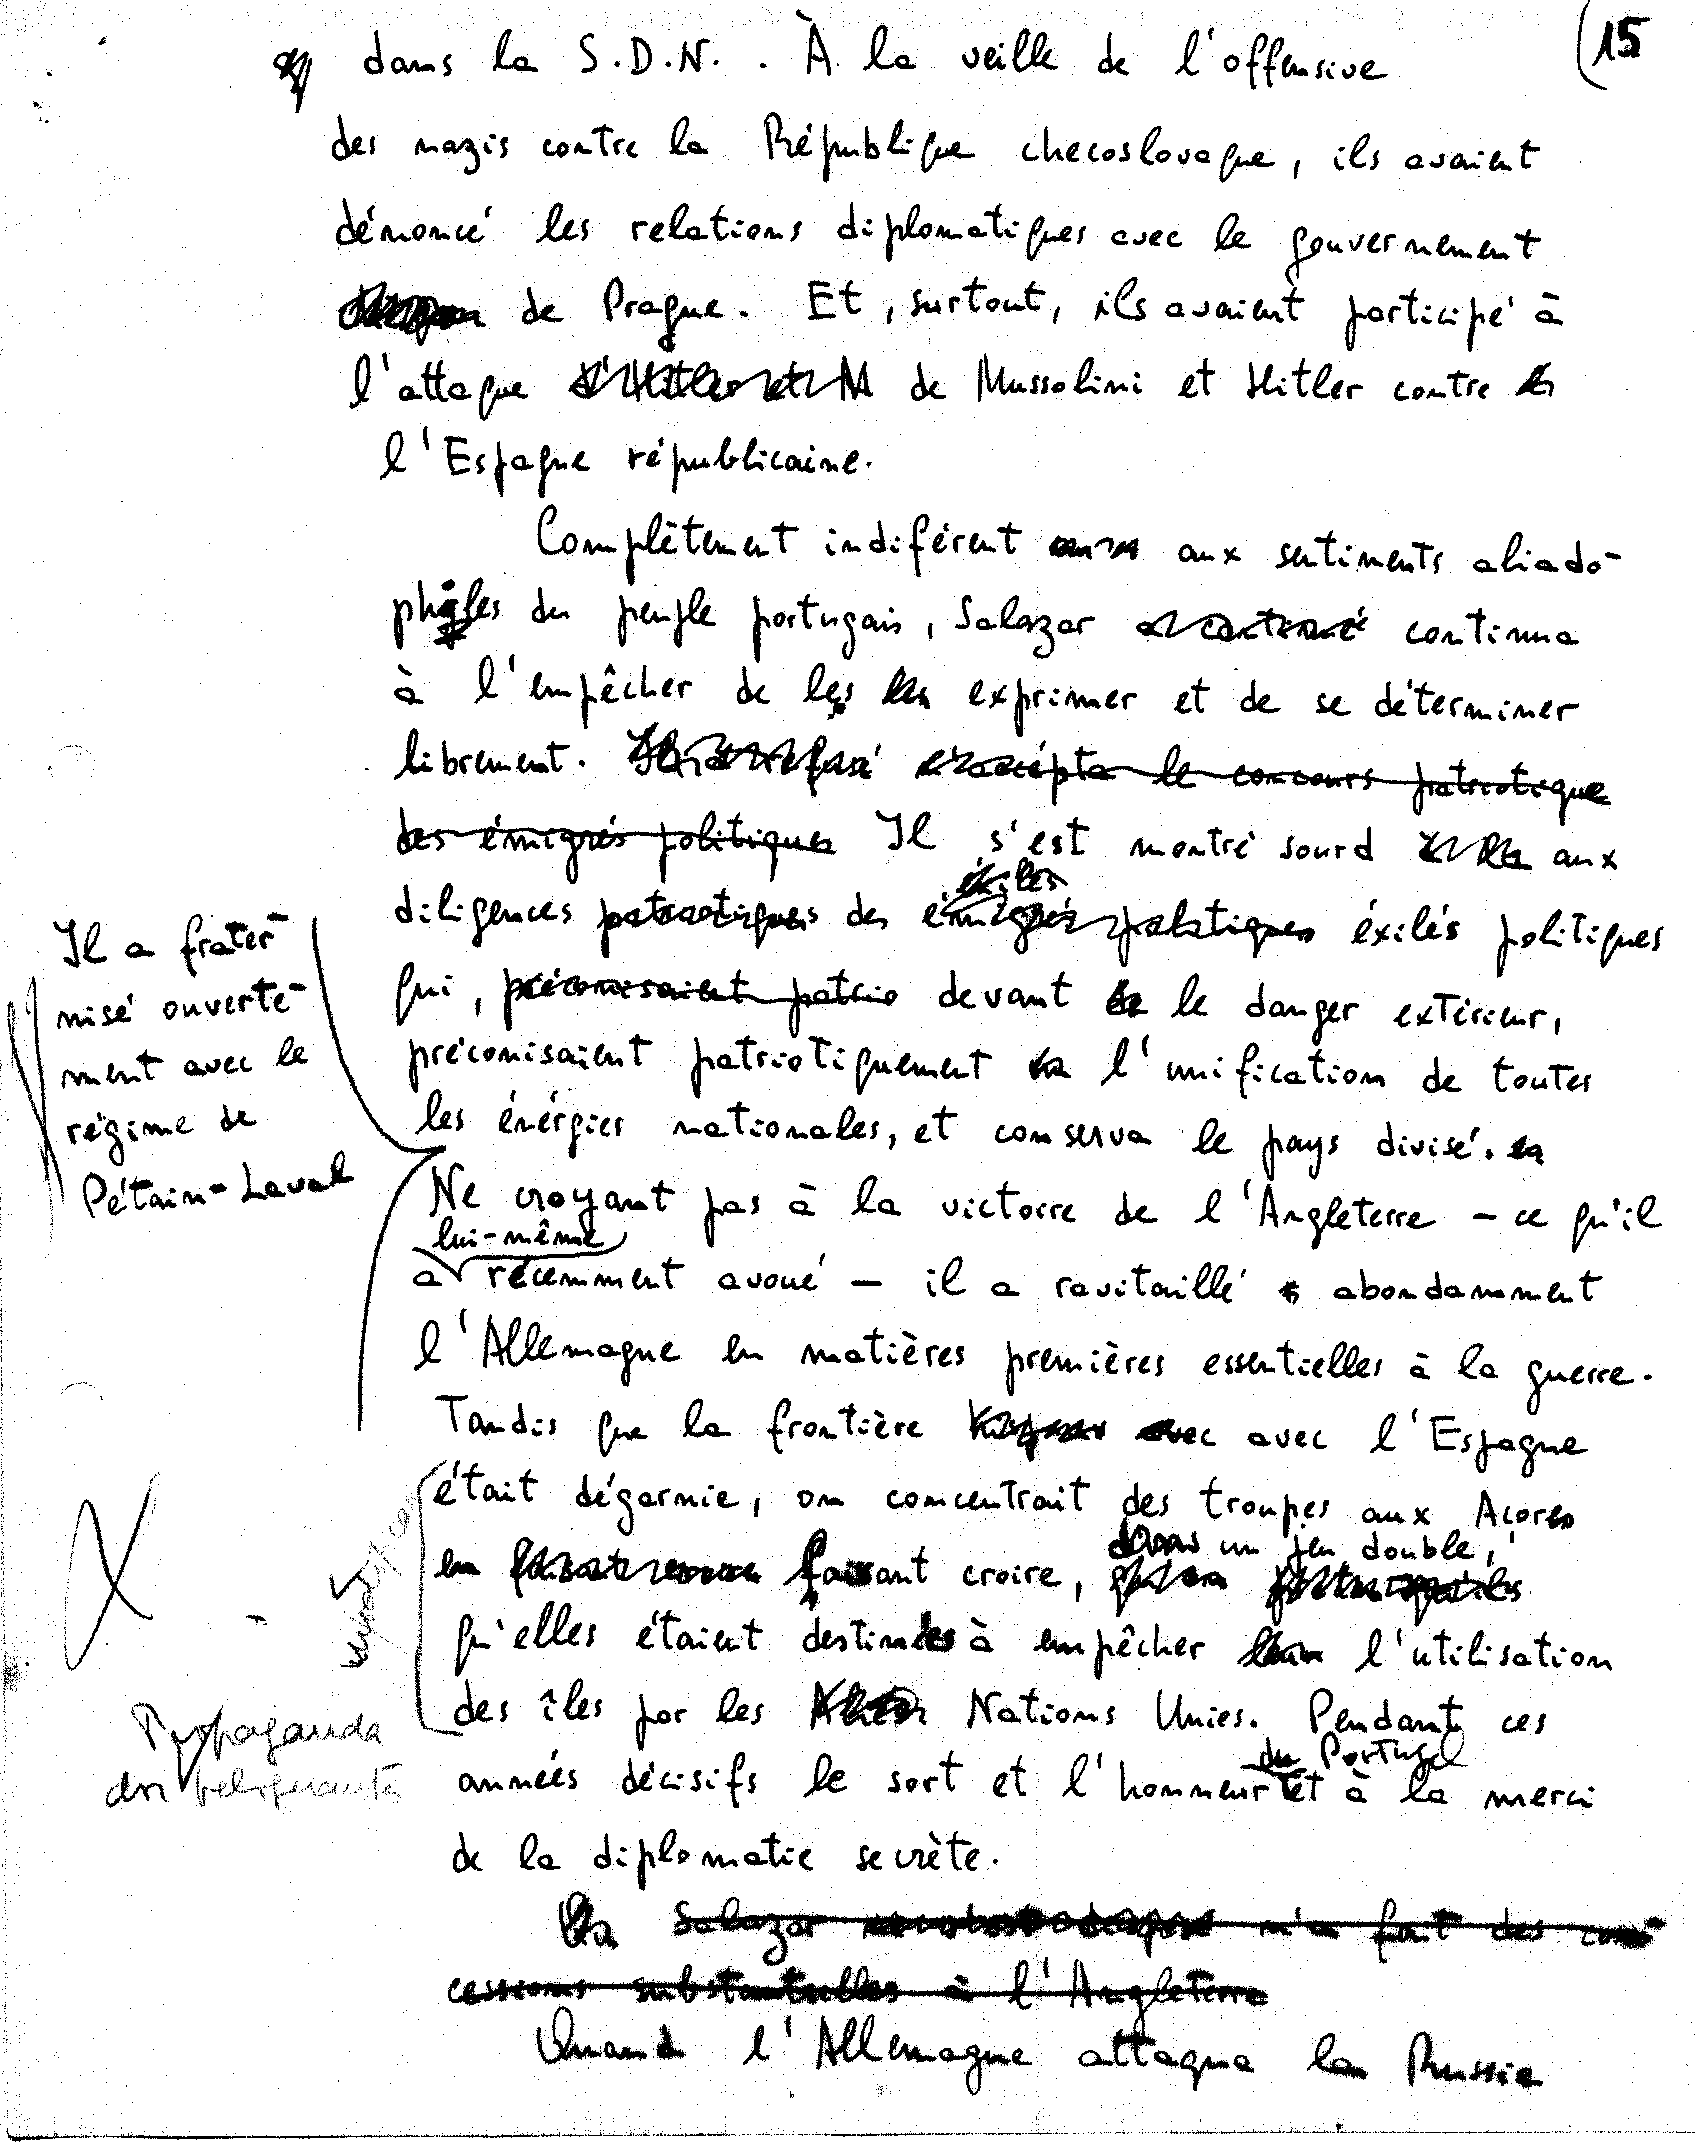 15
dans la S.D.N. . À la veille de l'offensive
des nazis contre la République checoslovaque, ils avaient
dénoncé les relations diplomatiques avec le gouvernement
de Prague. Et, surtout, ils avaient participé à
l'attaque d'Hitler et M de Mussolini et Hitler contre
l'Espagne républicaine.
Complètement indiférent aux sentiments aliado-
philes du peuple portugais, Salazar a continué continua
à l'empêcher de les exprimer et de se déterminer
librement. Il a refusé d'accépter le concours patriotique
des émigrés politiques Il s'est montré sourd aux
diligences patriotiques des émigrés politiques éxilés politiques
éxilés
qui, préconisaient patrio devant le danger extérieur,
préconisaient patriotiquement l'unification de toutes
les énérgies nationales, et conserva le pays divisé.
Il a frater-
nisé ouverte-
ment avec le
régime de
Pétain-Laval
Ne croyant pas à la victoire de l'Angleterre — ce qu'il
lui-même
a récemment avoué — il a ravitaillé abondamment
l'Allemagne en matières premières essentielles à la guerre.
Tandis que la frontière avec avec l'Espagne
était dégarnie, on concentrait des troupes aux Açores
dans un jeu double,
en faisant croire,
qu'elles étaient destinées à empêcher l'utilisation
des îles par les Nations Unies. Pendant ces
du Portugal
années décisifs le sort et l'honneur et à la merci
de la diplomatie secrète.
Propaganda
Salazar n'a fait des con-
cessions substantielles à l'Angleterre
Quand l'Allemagne attaqua la Russie